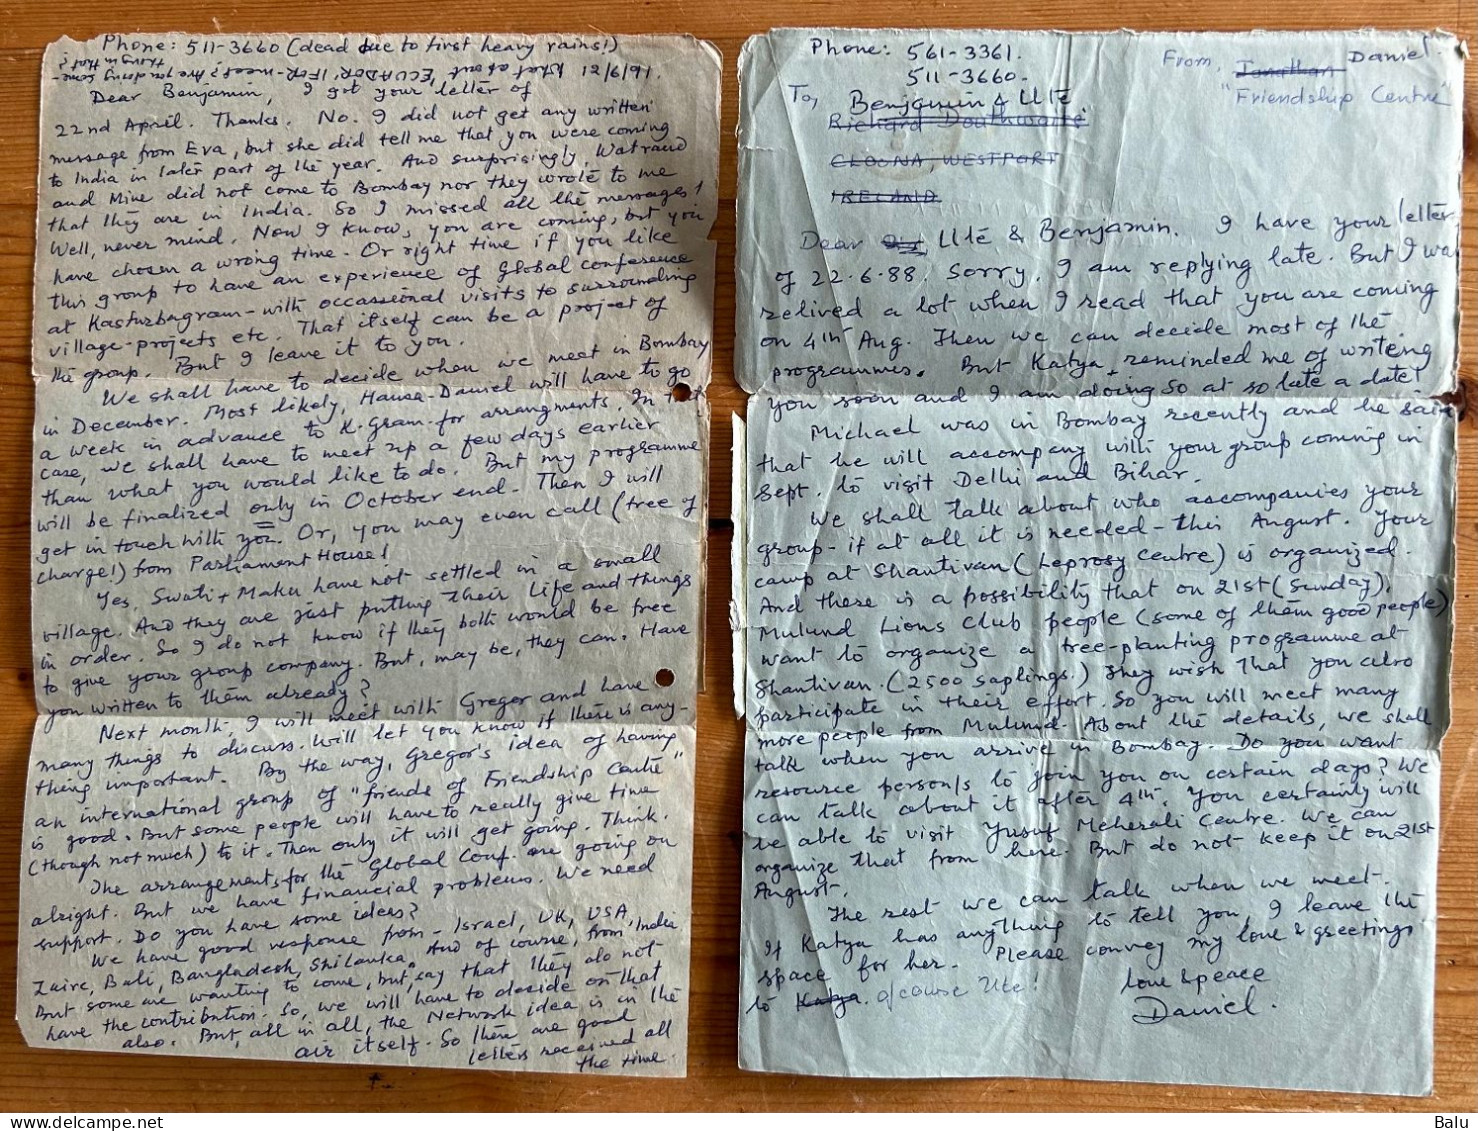 Phone: 511-3660 (dead due to first heavy rains!)
What about ECUADOR, IFOR-meets? Are you doing some-
thing in that?
12/6/91.
Dear Benjamin, I got your letter of
22nd April. Thanks. No. I did not get any written
message from Eva, but she did tell me that you were coming
to India in later part of the year. And surprisingly, Watraud
and Mine did not come to Bombay nor they wrote to me
that they are in India. So I missed all the messages!
Well, never mind. Now I know, you are coming, but you
have chosen a wrong time. Or right time if you like
this group to have an experience of Global conference
at Kasturbagram - with occassional visits to surrounding
village-projects etc. That itself can be a project of
the group. But I leave it to you.
We shall have to decide when we meet in Bombay
in December. Most likely, Hansa-Daniel will have to go
a week in advance to K.Gram for arrangments. In that
case, we shall have to meet up a few days earlier
than what you would like to do. But my programme
will be finalized only in October end. Then I will
get in touch with you. Or, you may even call (free of
charge!) from Parliament House!
Yes, Swati + Maku have not settled in a small
village. And they are just putting their life and things
in order. So I do not know if they both would be free
to give your group company. But, may be, they can. Have
you written to them already?
Next month, I will meet with Gregor and have
many things to discuss. Will let you know if there is any-
thing important. By the way, Gregor's idea of having
an international group of "friends of Friendship Centre"
is good. But some people will have to really give time
(though not much) to it. Then only it will get going. Think.
The arrangements for the Global Conf. are going on
alright. But we have financial problems. We need
support. Do you have some ideas?
We have good response from - Israel, UK, USA,
Zaire, Bali, Bangladesh, Sri Lanka. And of course, from India
But some are wanting to come, but, say that they do not
have the contribution. So, we will have to decide on that
also. But, all in all, the Network idea is in the
air itself. So there are good
letters received all
the time.
Phone: 561-3361.
511-3660.
From, Jonathan Daniel.
"Friendship Centre"
To, Benjamin & Ute
Richard Douthwaite
CLOONA, WESTPORT
IRELAND.
Dear Ute & Benjamin. I have your letter
of 22.6.88. Sorry, I am replying late. But I wa
relived a lot when I read that you are coming
on 4th Aug. Then we can decide most of the
programmes. But Katya reminded me of writing
you soon and I am doing so at so late a date!
Michael was in Bombay recently and he said
that he will accompany with your group coming in
Sept. to visit Delhi and Bihar.
We shall talk about who accompanies your
group - if at all it is needed - this August. Your
camp at Shantivan (Leprosy centre) is organized.
And there is a possibility that on 21st (Sunday),
Mulund Lions Club people (some of them good people)
want to organize a tree-planting programme at
Shantivan. (2500 saplings.) They wish that you also
participate in their effort. So you will meet many
more people from Mulund. About the details, we shall
talk when you arrive in Bombay. Do you want
resource person/s to join you on certain days? We
can talk about it after 4th. You certainly will
be able to visit Yusuf Meherali Centre. We can
organize that from here. But do not keep it on 21st
August.
The rest we can talk when we meet.
If Katya has anything to tell you, I leave the
space for her. Please convey my love & greetings
to Katya. ofcourse Ute!
love & peace
Daniel.
Balu